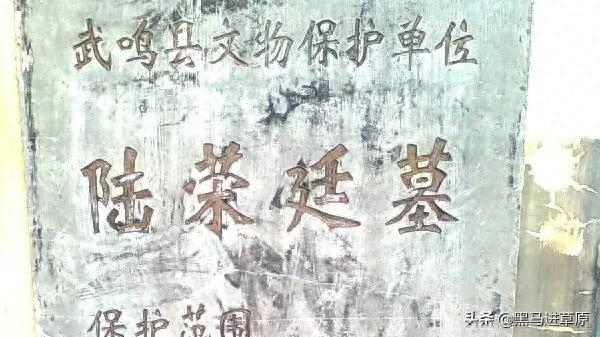 武鸣县文物保护单位
陆荣廷墓
保护范围
头条 @黑马进草原